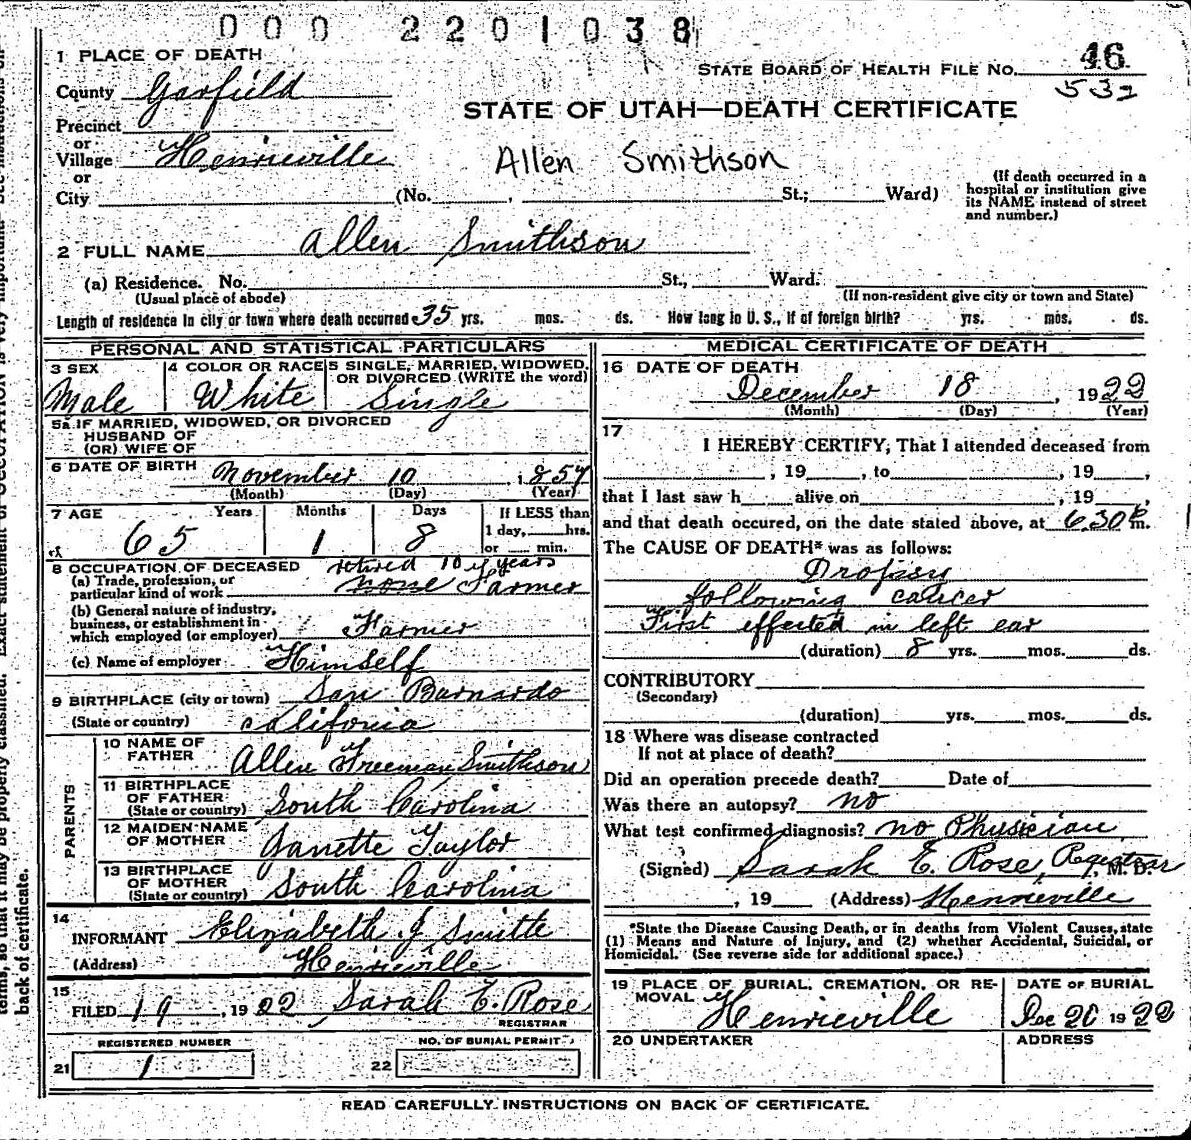 0 0 0 2 2 0 1 0 3 8
1 PLACE OF DEATH
County Garfield
STATE BOARD OF HEALTH FILE NO. 46
532
STATE OF UTAH—DEATH CERTIFICATE
Precinct
or
Village Henrieville
or
Allen Smithson
City (No. , St.; Ward)
(If death occurred in a
hospital or institution give
its NAME instead of street
and number.)
2 FULL NAME Allen Smithson
(a) Residence. No. St., Ward.
(Usual place of abode) (If non-resident give city or town and State)
Length of residence in city or town where death occurred 35 yrs. mos. ds. How long in U. S., if of foreign birth? yrs. mos. ds.
PERSONAL AND STATISTICAL PARTICULARS
3 SEX 4 COLOR OR RACE 5 SINGLE, MARRIED, WIDOWED,
OR DIVORCED (WRITE the word)
Male White Single
5a IF MARRIED, WIDOWED, OR DIVORCED
HUSBAND OF
(OR) WIFE OF
6 DATE OF BIRTH November 10, 1857
(Month) (Day) (Year)
7 AGE Years Months Days If LESS than
1 day, hrs.
or min.
65 1 8
8 OCCUPATION OF DECEASED retired 10 yrs years
(a) Trade, profession, or
particular kind of work none Farmer
(b) General nature of industry,
business, or establishment in
which employed (or employer) Farmer
(c) Name of employer Himself
9 BIRTHPLACE (city or town) San Barnardo
(State or country) california
PARENTS
10 NAME OF
FATHER Allen Freeman Smithson
11 BIRTHPLACE
OF FATHER
(State or country) South Carolina
12 MAIDEN NAME
OF MOTHER Janette Taylor
13 BIRTHPLACE
OF MOTHER
(State or country) South Carolina
14
INFORMANT Elizabeth J Smitte
(Address) Henrieville
15
FILED 19, 1922 Sarah E. Rose
REGISTRAR
REGISTERED NUMBER NO. OF BURIAL PERMIT
21 1 22
MEDICAL CERTIFICATE OF DEATH
16 DATE OF DEATH
December 18, 1922
(Month) (Day) (Year)
17
I HEREBY CERTIFY, That I attended deceased from
, 19 , to , 19 ,
that I last saw h alive on , 19 ,
and that death occured, on the date stated above, at 6.30 P m.
The CAUSE OF DEATH* was as follows:
Dropsy
following cancer
First effected in left ear
(duration) 8 yrs. mos. ds.
CONTRIBUTORY
(Secondary)
(duration) yrs. mos. ds.
18 Where was disease contracted
If not at place of death?
Did an operation precede death? Date of
Was there an autopsy? no
What test confirmed diagnosis? no Physician
(Signed) Sarah E. Rose, Registrar, M. D.
, 19 (Address) Henrieville
*State the Disease Causing Death, or in deaths from Violent Causes, state
(1) Means and Nature of Injury, and (2) whether Accidental, Suicidal, or
Homicidal. (See reverse side for additional space.)
19 PLACE OF BURIAL, CREMATION, OR RE-
MOVAL Henrieville
DATE OF BURIAL
Dec 20 1922
20 UNDERTAKER ADDRESS
READ CAREFULLY INSTRUCTIONS ON BACK OF CERTIFICATE.
terms, so that it may be properly classified. Exact statement of OCCUPATION is very important. See instructions on
back of certificate.